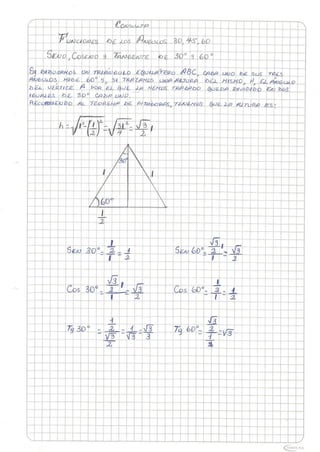 Consulta
Funciones de los Angulos 30, 45, 60
Seno, Coseno y Tangente de 30° y 60°
Si dibujamos un triangulo equilatero ABC, cada uno de sus tres
angulos mide 60° y, si trazamos una altura del mismo, h, el angulo
del vertice A por el que la hemos trazado queda dividido en dos
iguales de 30° cada uno.
Recurriendo al Teorema de Pitagoras, tenemos que la altura es:
h = √(l² - (l/2)²) = √(3l²/4) = √3/2 l
30°
l l
60°
l/2
Sen 30° = (l/2)/l = 1/2 Sen 60° = (√3/2 l)/l = √3/2
Cos 30° = (√3/2 l)/l = √3/2 Cos 60° = (l/2)/l = 1/2
Tg 30° = (1/2)/(√3/2) = 1/√3 = √3/3 Tg 60° = (√3/2)/(1/2) = √3